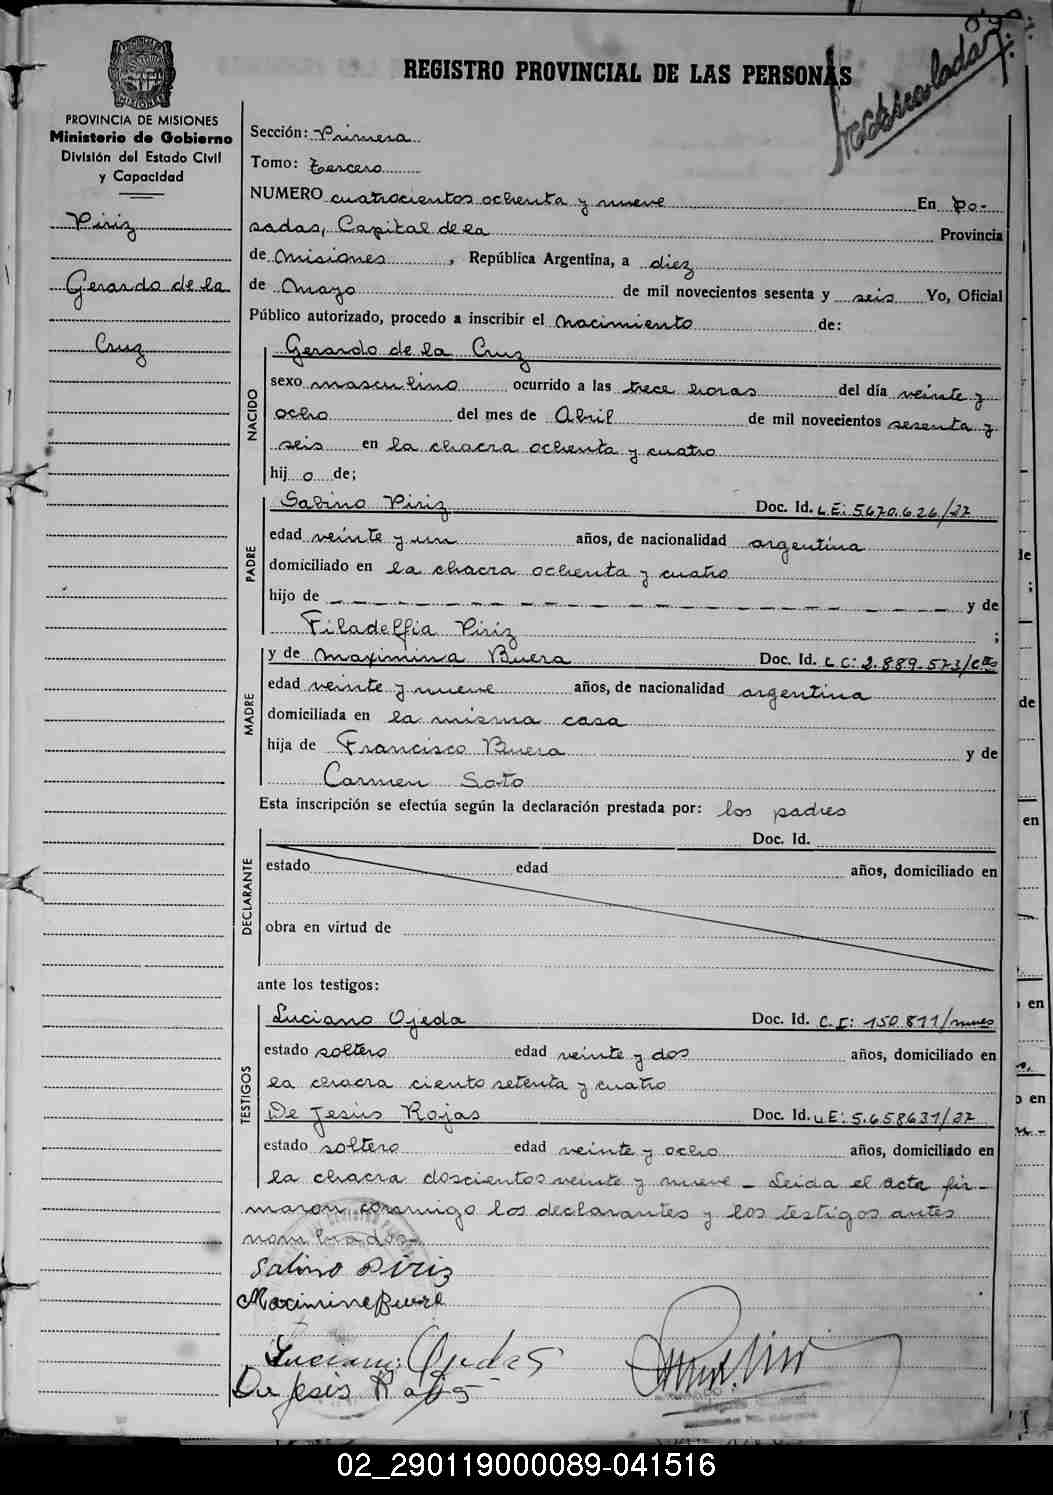 REGISTRO PROVINCIAL DE LAS PERSONAS
PROVINCIA DE MISIONES
Ministerio de Gobierno
División del Estado Civil
y Capacidad
Piriz
Gerardo de la
Cruz
Sección: Primera
Tomo: tercero
NUMERO cuatrocientos ochenta y nueve En Po-
sadas, Capital de la Provincia
de Misiones, República Argentina, a diez
de Mayo de mil novecientos sesenta y seis Yo, Oficial
Público autorizado, procedo a inscribir el nacimiento de:
NACIDO
Gerardo de la Cruz
sexo masculino ocurrido a las trece horas del día veinte y
ocho del mes de Abril de mil novecientos sesenta y
seis en la chacra ochenta y cuatro
hijo de;
PADRE
Sabino Piriz Doc. Id. L.E: 5.670.626/27
edad veinte y un años, de nacionalidad argentina
domiciliado en la chacra ochenta y cuatro
hijo de — — — — — — — — y de
Filadelfia Piriz ;
MADRE
y de Maximina Buera Doc. Id. L C: 2.889.573/
edad veinte y nueve años, de nacionalidad argentina
domiciliada en la misma casa
hija de Francisco Buera y de
Carmen Soto
Esta inscripción se efectúa según la declaración prestada por: los padres
DECLARANTE
Doc. Id.
estado edad años, domiciliado en
obra en virtud de
ante los testigos:
TESTIGOS
Luciano Ojeda Doc. Id. C.I: 150.811/mnes
estado soltero edad veinte y dos años, domiciliado en
la chacra ciento setenta y cuatro
De Jesús Rojas Doc. Id. LE: 5.658631/27
estado soltero edad veinte y ocho años, domiciliado en
la chacra doscientos veinte y nueve - Leida el acta fir-
maron conmigo los declarantes y los testigos antes
nombrados-
Sabino Piriz
Maximina Buera
Luciano Ojeda
De Jesus Rojas
de
;
de
en
en
en
02_290119000089-041516